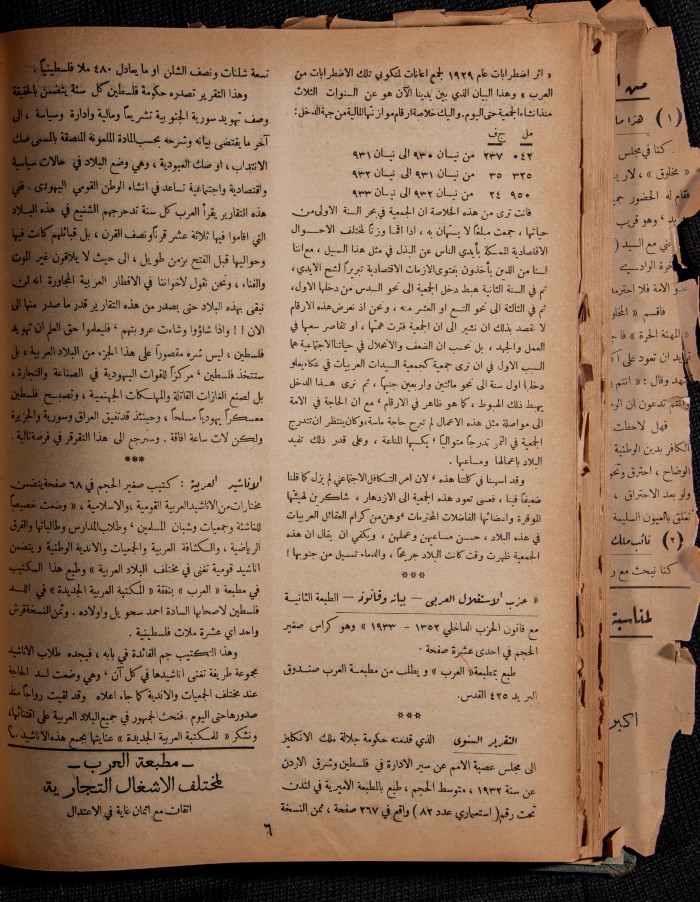 « اثر اضطرابات عام ١٩٢٩ لجمع اعانات لمنكوبي تلك الاضطرابات من
العرب » وهذا البيان الذي بين يدينا الآن هو عن السنوات الثلاث
منذ انشاء الجمعية حتى اليوم. واليك خلاصة ارقام موازنتها المالية من جهة الدخل:
مل ج.ف
٠٤٢ ٢٣٧ من نيسان ٩٣٠ الى نيسان ٩٣١
٣٢٥ ٣٥ من نيسان ٩٣١ الى نيسان ٩٣٢
٩٥٠ ٢٤ من نيسان ٩٣٢ الى نيسان ٩٣٣
فانت ترى من هذه الخلاصة ان الجمعية في بحر السنة الاولى من
حياتها ، جمعت مبلغاً لا يستهان به ، اذا اقمنا وزناً لمختلف الاحوال
الاقتصادية الممسكة بأيدي الناس عن البذل في مثل هذا السبيل ، مع اننا
لسنا من الذين يأخذون بفتوى الازمات الاقتصادية تبريراً لشح الايدي ،
ثم في السنة الثانية هبط دخل الجمعية الى نحو السدس من دخلها الاول ،
ثم في الثالثة الى نحو التسع او العشر منه . ونحن اذ نعرض هذه الارقام
لا نقصد بذلك ان نشير الى ان الجمعية فترت همتها ، او تقاصر سعيها في
العمل والجهد ، بل نحسب ان الضعف والانحلال في حياتنا الاجتماعية هما
السبب الاول في ان نرى جمعية كجمعية السيدات العربيات في عكا ، يعلو
دخلها اول سنة الى نحو مائتين واربعين جنيهاً ، ثم نرى هذا الدخل
يهبط ذلك الهبوط ، كما هو ظاهر في الارقام ، مع ان الحاجة في الامة
الى مواصلة مثل هذه الاعمال لم تبرح حاجة ماسة ، وكان ينتظر ان تتدرج
الجمعية في النمو تدرجاً متوالياً ، يكسبها المناعة ، وعلى قدر ذلك تفيد
البلاد باعمالها ومساعيها .
وقد اسهبنا في كلمتنا هذه ، لان امر التكافل الاجتماعي لم يزل كما قلنا
ضعيفاً فينا ، فعسى تعود هذه الجمعية الى الازدهار ، شاكرين لهيئتها
الموقرة واعضائها الفاضلات المحترمات ، وهن من كرام العقائل العربيات
في هذه البلاد ، حسن مساعيهن وعملهن ، ويكفي ان يقال ان هذه
الجمعية ظهرت وقت كانت البلاد جريحاً ، والدماء تسيل من جنوبها !
***
« حزب الاستقلال العربي — بيانه وقانونه — الطبعة الثانية
مع قانون الحزب الداخلي ١٣٥٢ - ١٩٣٣ » وهو كراس صغير
الحجم في احدى عشرة صفحة .
طبع بمطبعة « العرب » ويطلب من مطبعة العرب صندوق
البريد ٤٢٥ القدس.
***
التقرير السنوي الذي قدمته حكومة جلالة ملك الانكليز
الى مجلس عصبة الامم عن سير الادارة في فلسطين وشرق الاردن
عن سنة ١٩٣٢ ، متوسط الحجم ، طبع بالمطبعة الاميرية في لندن
تحت رقم ( استعماري عدد ٨٢ ) واقع في ٢٦٧ صفحة ، ثمن النسخة
تسعة شلنات ونصف الشلن او ما يعادل ٤٨٠ ملا فلسطينياً .
وهذا التقرير تصدره حكومة فلسطين كل سنة يتضمن بالحقيقة
وصف تهويد سورية الجنوبية تشريعاً ومالية وادارة وسياسة ، الى
آخر ما يقتضى بيانه وشرحه بحسب المادة الملعونة الملصقة بالمسمى صك
الانتداب ، او صك العبودية ، وهي وضع البلاد في حالات سياسية
واقتصادية واجتماعية تساعد في انشاء الوطن القومي اليهودي . ففي
هذه التقارير يقرأ العرب كل سنة تدحرجهم الشنيع في هذه البلاد
التي اقاموا فيها ثلاثة عشر قرناً ونصف القرن ، بل قبائلهم كانت فيها
وحواليها قبل الفتح بزمن طويل ، الى حيث لا يلاقون غير الموت
والفناء ، ونحن نقول لاخواننا في الاقطار العربية المجاورة انه لن
تبقى بهذه البلاد حتى يصدر من هذه التقارير قدر ما صدر منها الى
الآن !! واذا شاؤوا وشاءت عروبتهم ، فليعلموا حق العلم ان تهويد
فلسطين ، ليس شره مقصوراً على هذا الجزء من البلاد العربية ، بل
ستتخذ فلسطين ، مركزاً للقوات اليهودية في الصناعة والتجارة ،
بل لصنع الغازات القاتلة والمهلكات الجهنمية ، وتصبح فلسطين
معسكراً يهودياً مسلحاً ، وحينئذ قد تفيق العراق وسورية والجزيرة
ولكن لات ساعة افاقة . وسنرجع الى هذا التقرير في فرصة تالية .
***
الاناشيد العربية : كتيب صغير الحجم في ٦٨ صفحة يتضمن
مختارات من الاناشيد العربية القومية والاسلامية ، « وضعت خصيصاً
للناشئة وجمعيات وشبان المسلمين ، وطلاب المدارس وطالباتها والفرق
الرياضية ، والكشافة العربية والجمعيات والاندية الوطنية ويتضمن
اناشيد قومية تغنى في مختلف البلاد العربية » وطبع هذا الكتيب
في مطبعة « العرب » بنفقة « المكتبة العربية الجديدة » في اللد
فلسطين لاصحابها السادة احمد سحويل واولاده . وثمن النسخة قرش
واحد اي عشرة ملات فلسطينية .
وهذا الكتيب جم الفائدة في بابه ، فيجده طلاب الاناشيد
مجموعة طريفة تغنى اناشيدها في كل آن ، وهي وضعت لسد الحاجة
عند مختلف الجمعيات والاندية كما جاء اعلاه وقد لقيت رواجاً منذ
صدورها حتى اليوم . فنحث الجمهور في جميع البلاد العربية على اقتنائها ،
ونشكر « للمكتبة العربية الجديدة » عنايتها بجمع هذه الاناشيد .
— مطبعة العرب —
لمختلف الاشغال التجارية
اتقان مع اثمان غاية في الاعتدال
٦
( ١ ) هذا
كنا في مجلس
فقام له الحضور
وهو قريب
مع السيد (
« المهنة الحرة »
وقال : « انتم
فهل لاحظت
الكافر بدين الوطنية
الوضاح ، احترق
ولو بعد الاحتراق ،
بالعيون السليمة
( ٢ ) نائب ملك
كنا نبحث مع
لمناسبة
اكبر